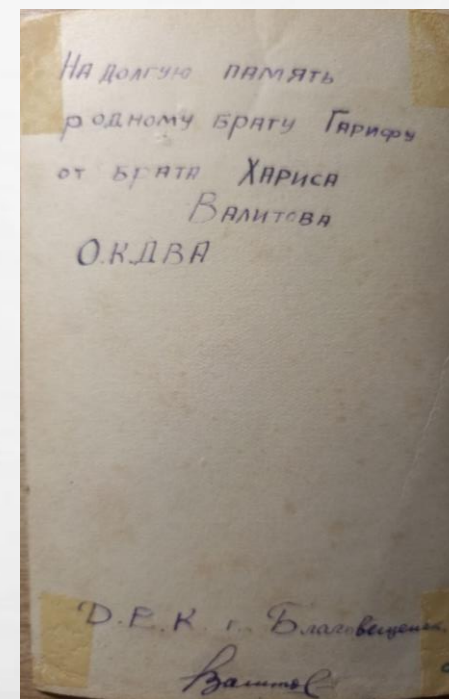 На долгую память
родному брату Гарифу
от брата Хариса
Валитова
О.К.Д.В.А
Д.В.К. г. Благовещенск.
Валитов